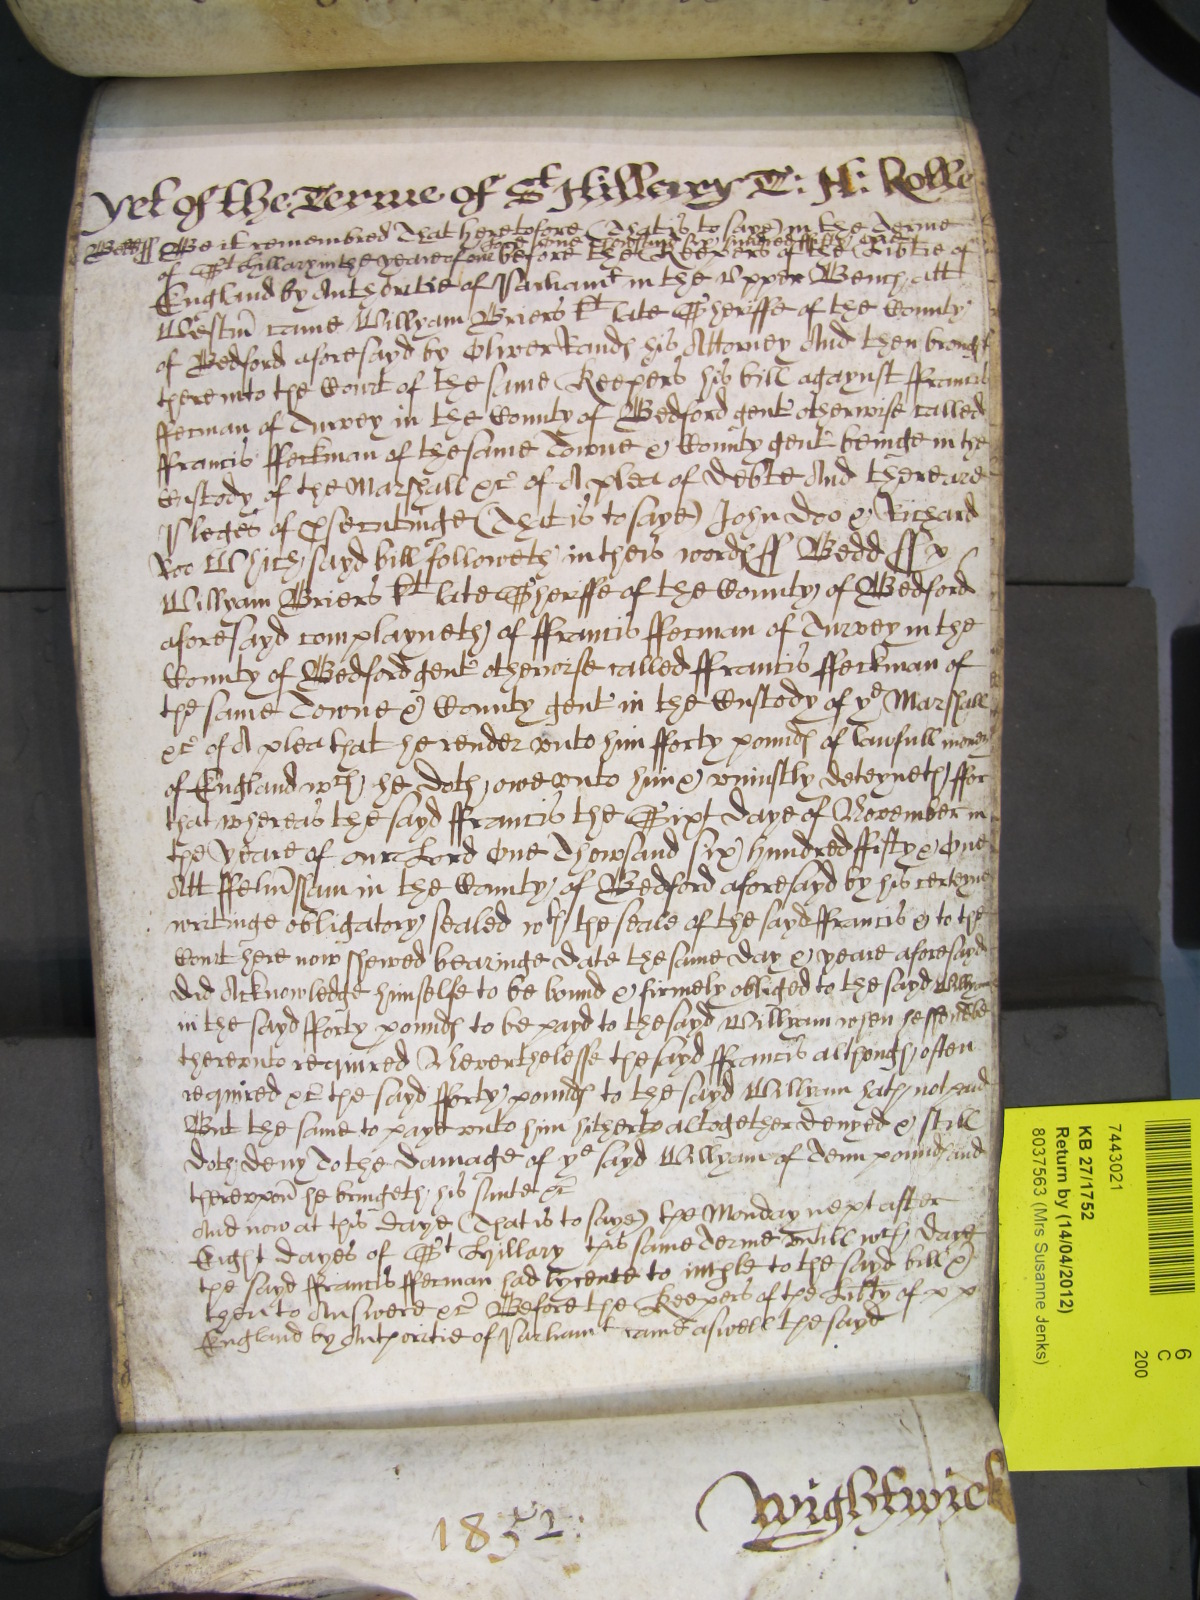 yet of the Terme of St Hillary T: H: Rolle
Bedd ss Be it remembred That heretofore (That is to saye) in the Terme
of St Hillary in the yeare of our one Thowsand six hundred fifty
before the Keepers of the Libtie of
England by Authoritie of Parliamt in the Upper Bench att
Westm came Willyam Briers kt late Sheriffe of the County
of Bedford aforesayd by Oliver Rands his Attorney And then brought
there into the Court of the same Keepers his bill agaynst ffrancis
ffecman of Turvey in the County of Bedford gent otherwise called
ffrancis ffeckman of the same Towne & County gent beinge in the
Custody of the Marshall &c of A plea of debte And there are
Pleges of psecutinge (That is to saye) John Doo & Richard
Roo Which sayd bill followeth in theis words ss Bedd ss
Willyam Briers kt late Sheriffe of the County of Bedford
aforesayd complayneth of ffrancis ffecman of Turvey in the
County of Bedford gent otherwise called ffrancis ffeckman of
the same Towne & County gent in the Custody of ye Marshall
&c of A plea that he render unto him fforty pounds of lawfull money
of England wch he doth owe unto him & uniustly deteyneth ffor
that whereas the sayd ffrancis the Sixt daye of November in
the yeare of our Lord One Thowsand six hundred ffifty & One
Att ffelmsham in the County of Bedford aforesayd by his certeyne
writinge obligatory sealed wth the seale of the sayd ffrancis & to the
Court here now shewed bearinge date the same day & yeare aforesayd
did Acknowledge himselfe to be bound & firmely obliged to the sayd Willyam
in the sayd fforty pounds to be payd to the sayd Willyam when he
thereunto required Neverthelesse the sayd ffrancis although often
required &c the sayd fforty pounds to the sayd Willyam hath not payd
But the same to paye unto him hitherto altogether denyed & still
doth deny To the damage of ye sayd Willyam of Tenn pounds and
thereupon he bringeth his suite &c
And now at this daye (That is to saye) the Monday next after
Eight dayes of St Hillary this same Terme Untill wch daye
the sayd ffrancis ffecman had lycence to imple to the sayd bill &
then to Answere &c Before the Keepers of the Libty of
England by Authoritie of Parliamt came aswell the sayd
1852:
Wightwick
7443021
KB 27/1752
Return by (14/04/2012)
8037563 (Mrs Susanne Jenks)
6
C
200